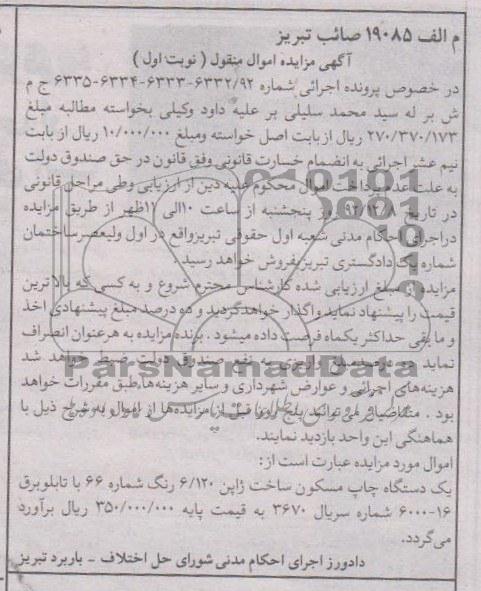 م الف ۱۹۰۸۵ صائب تبریز
آگهی مزایده اموال منقول ( نوبت اول )
در خصوص پرونده اجرائی شماره ۶۳۳۲/۹۲-۶۳۳۳-۶۳۳۴-۶۳۳۵ ج م
ش بر له سید محمد سلیلی بر علیه داود وکیلی بخواسته مطالبه مبلغ
۲۷۰/۳۷۰/۱۷۳ ریال از بابت اصل خواسته ومبلغ ۱۰/۰۰۰/۰۰۰ ریال از بابت
نیم عشر اجرائی به انضمام خسارت قانونی وفق قانون در حق صندوق دولت
به علت عدم پرداخت اموال محکوم علیه دین از ارزیابی وطی مراحل قانونی
در تاریخ ۹۲/۱۲/۸ روز پنجشنبه از ساعت ۱۰الی ۱۲ظهر از طریق مزایده
دراجرای احکام مدنی شعبه اول حقوقی تبریزواقع در اول ولیعصرساختمان
شماره یک دادگستری تبریزبفروش خواهد رسید
مزایده از مبلغ ارزیابی شده کارشناس محترم شروع و به کسی که بالاترین
قیمت را پیشنهاد نماید واگذار خواهدگردید و ده درصد مبلغ پیشنهادی اخذ
و ما بقی حداکثر یکماه فرصت داده میشود . برنده مزایده به هرعنوان انصراف
نماید ده درصدمبلغ واریزی به نفع صندوق دولت ضبط خواهد شد
هزینه‌های اجرائی و عوارض شهرداری و سایر هزینه‌ها،طبق مقررات خواهد
بود . متقاضیان می توانند پنج روز قبل از مزایده‌ها از اموال به شرح ذیل با
هماهنگی این واحد بازدید نمایند.
اموال مورد مزایده عبارت است از:
یک دستگاه چاپ مسکون ساخت ژاپن ۶/۱۲۰ رنگ شماره ۶۶ با تابلوبرق
۱۶-۶۰۰۰ شماره سریال ۳۶۷۰ به قیمت پایه ۳۵۰/۰۰۰/۰۰۰ ریال برآورد
می‌گردد.
دادورز اجرای احکام مدنی شورای حل اختلاف - باربرد تبریز
ParsNamadData